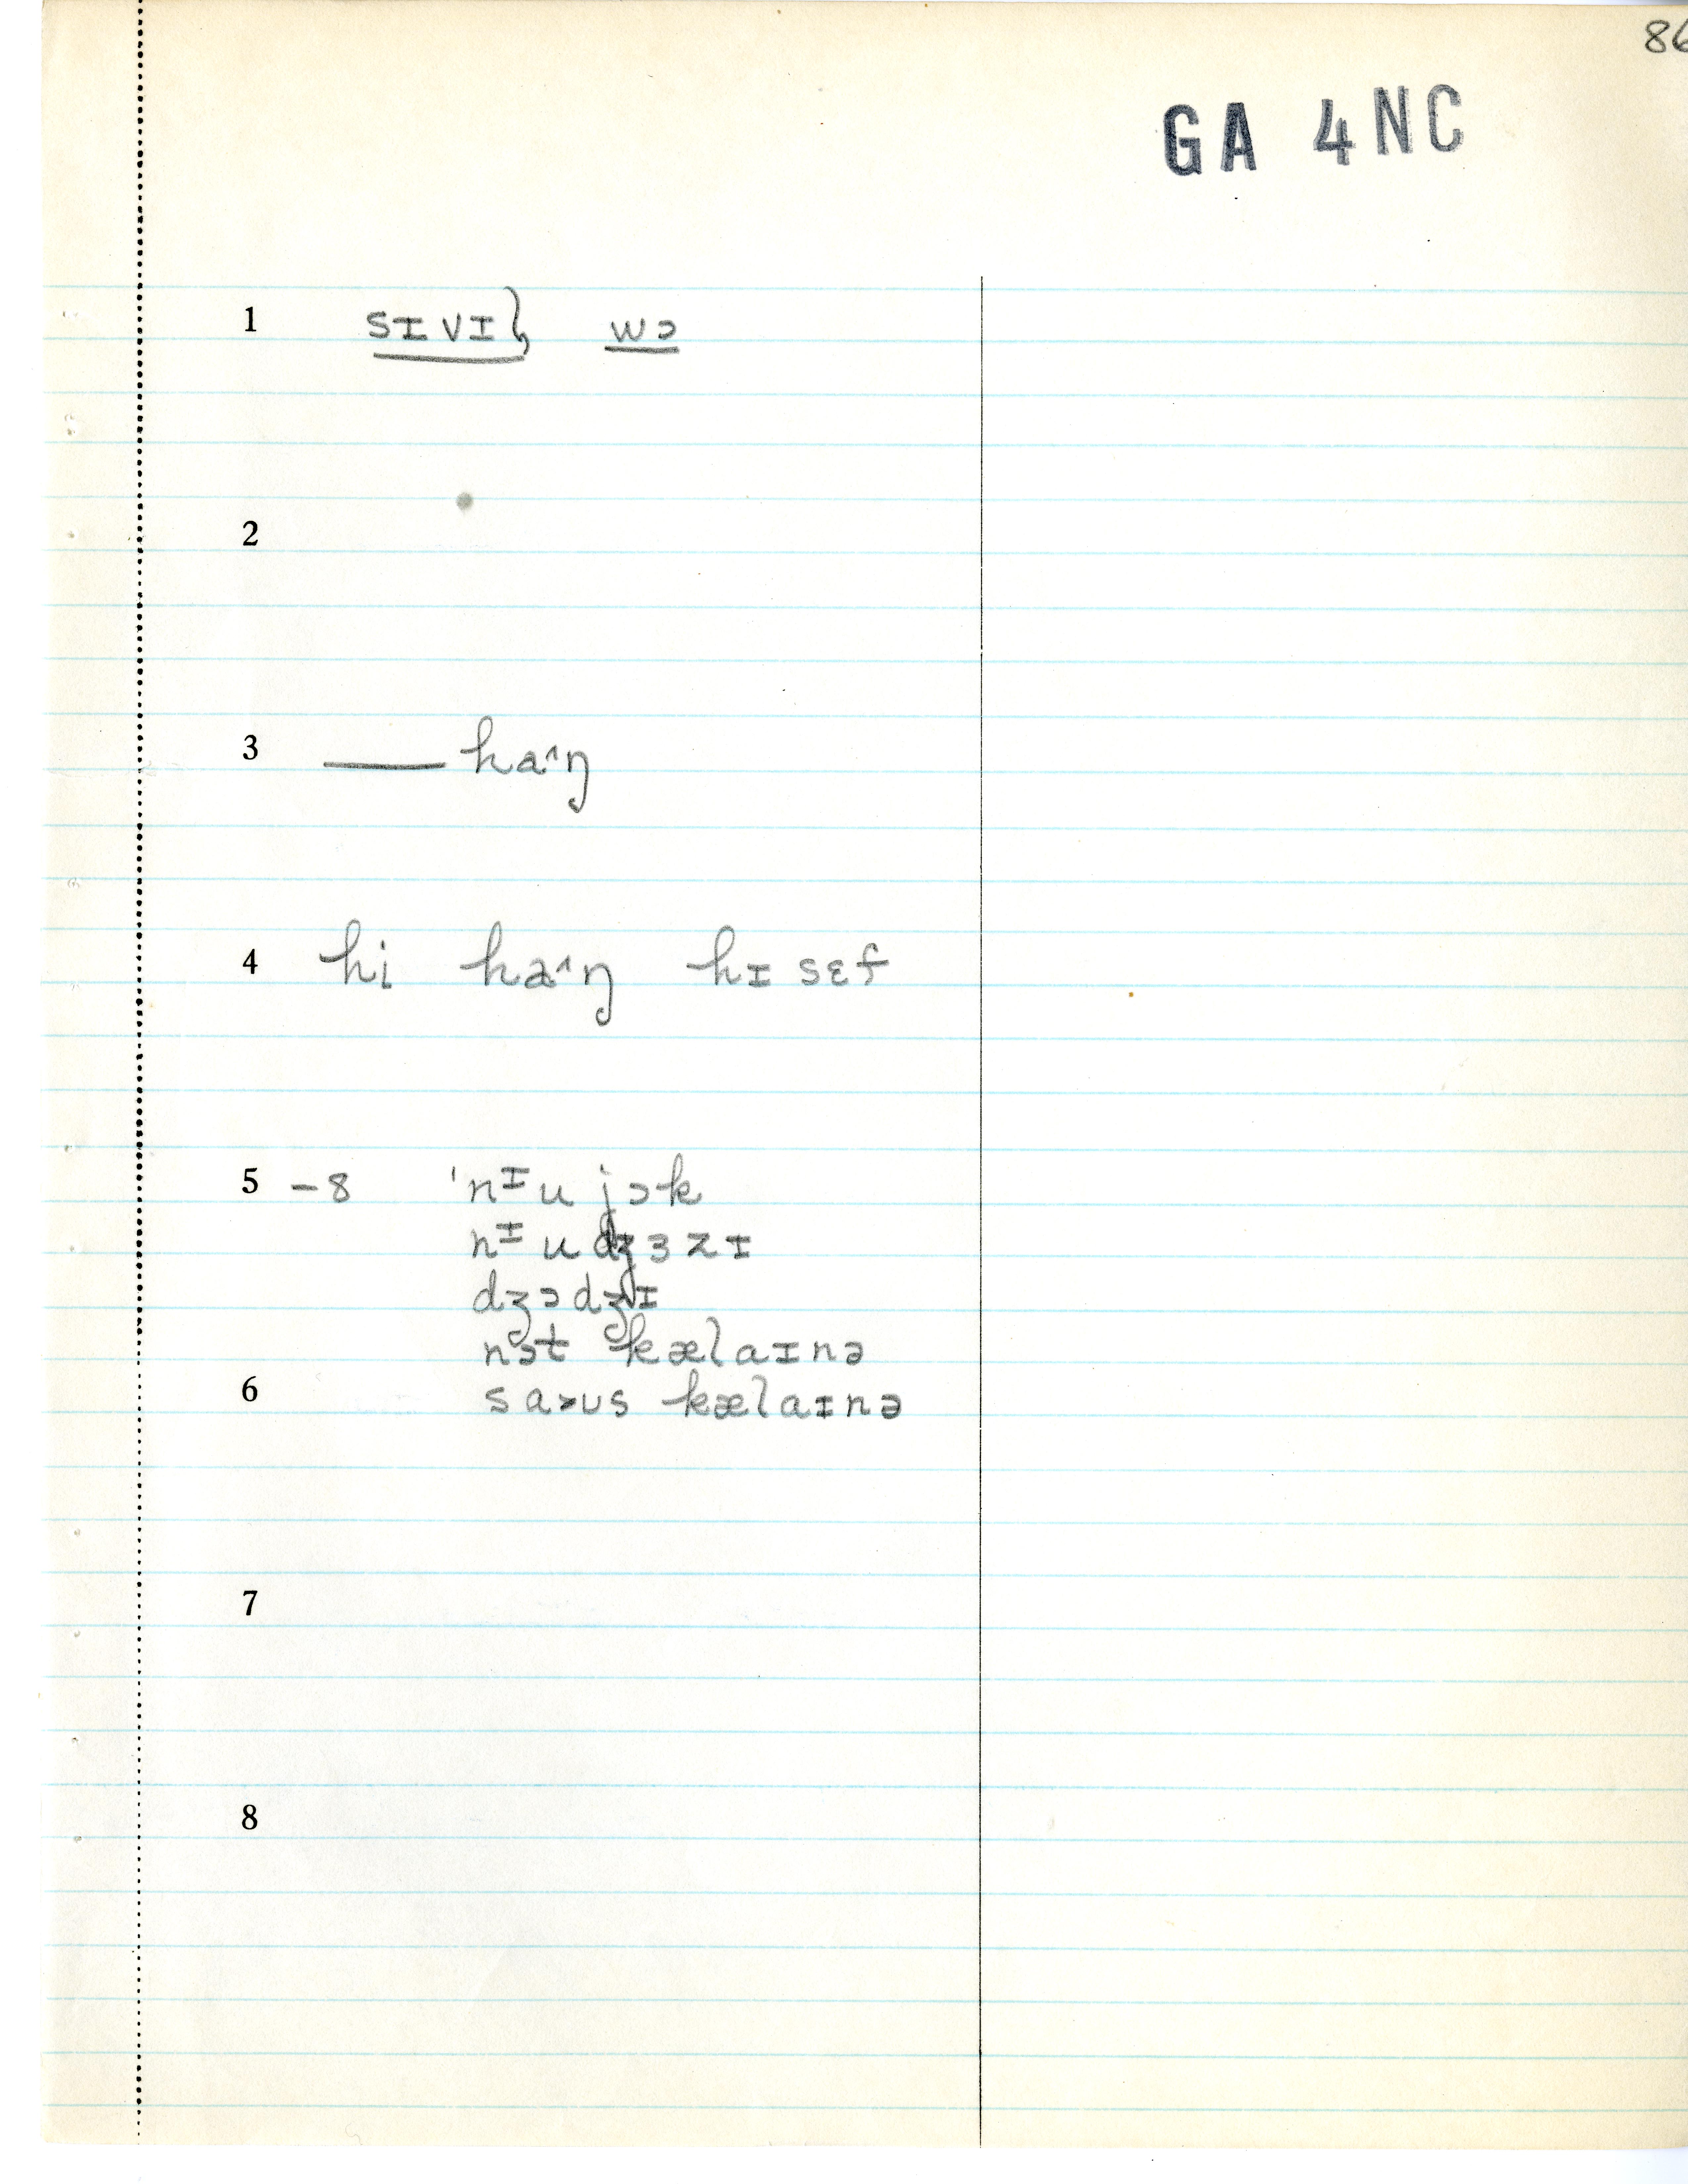 86
GA 4NC
1 sɪvɪl̩ wɔ
2
3 —— ha^ŋ
4 hi ha^ŋ hɪ sɛf
5 -8 'nᶦu jɔk
nᶦu dʒɜzɪ
dʒɔdʒɪ
nɔt kælaɪnə
6 sa>ʊs kælaɪnə
7
8